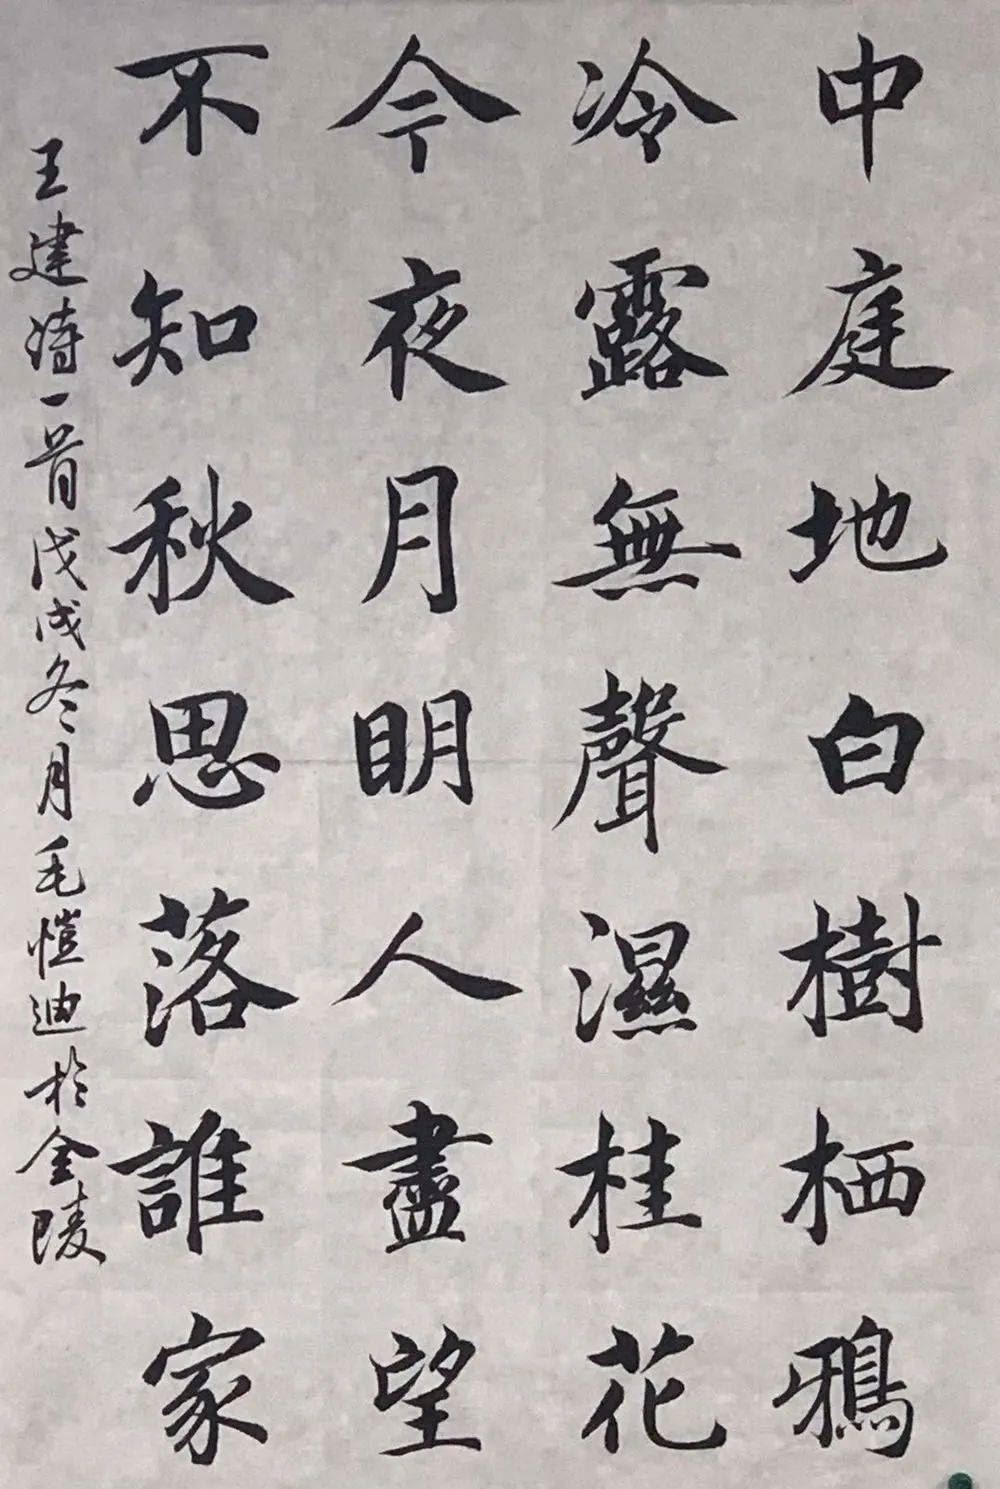 中庭地白樹栖鴉
冷露無聲濕桂花
今夜月明人盡望
不知秋思落誰家
王建詩一首戊戌冬月毛愷迪於金陵